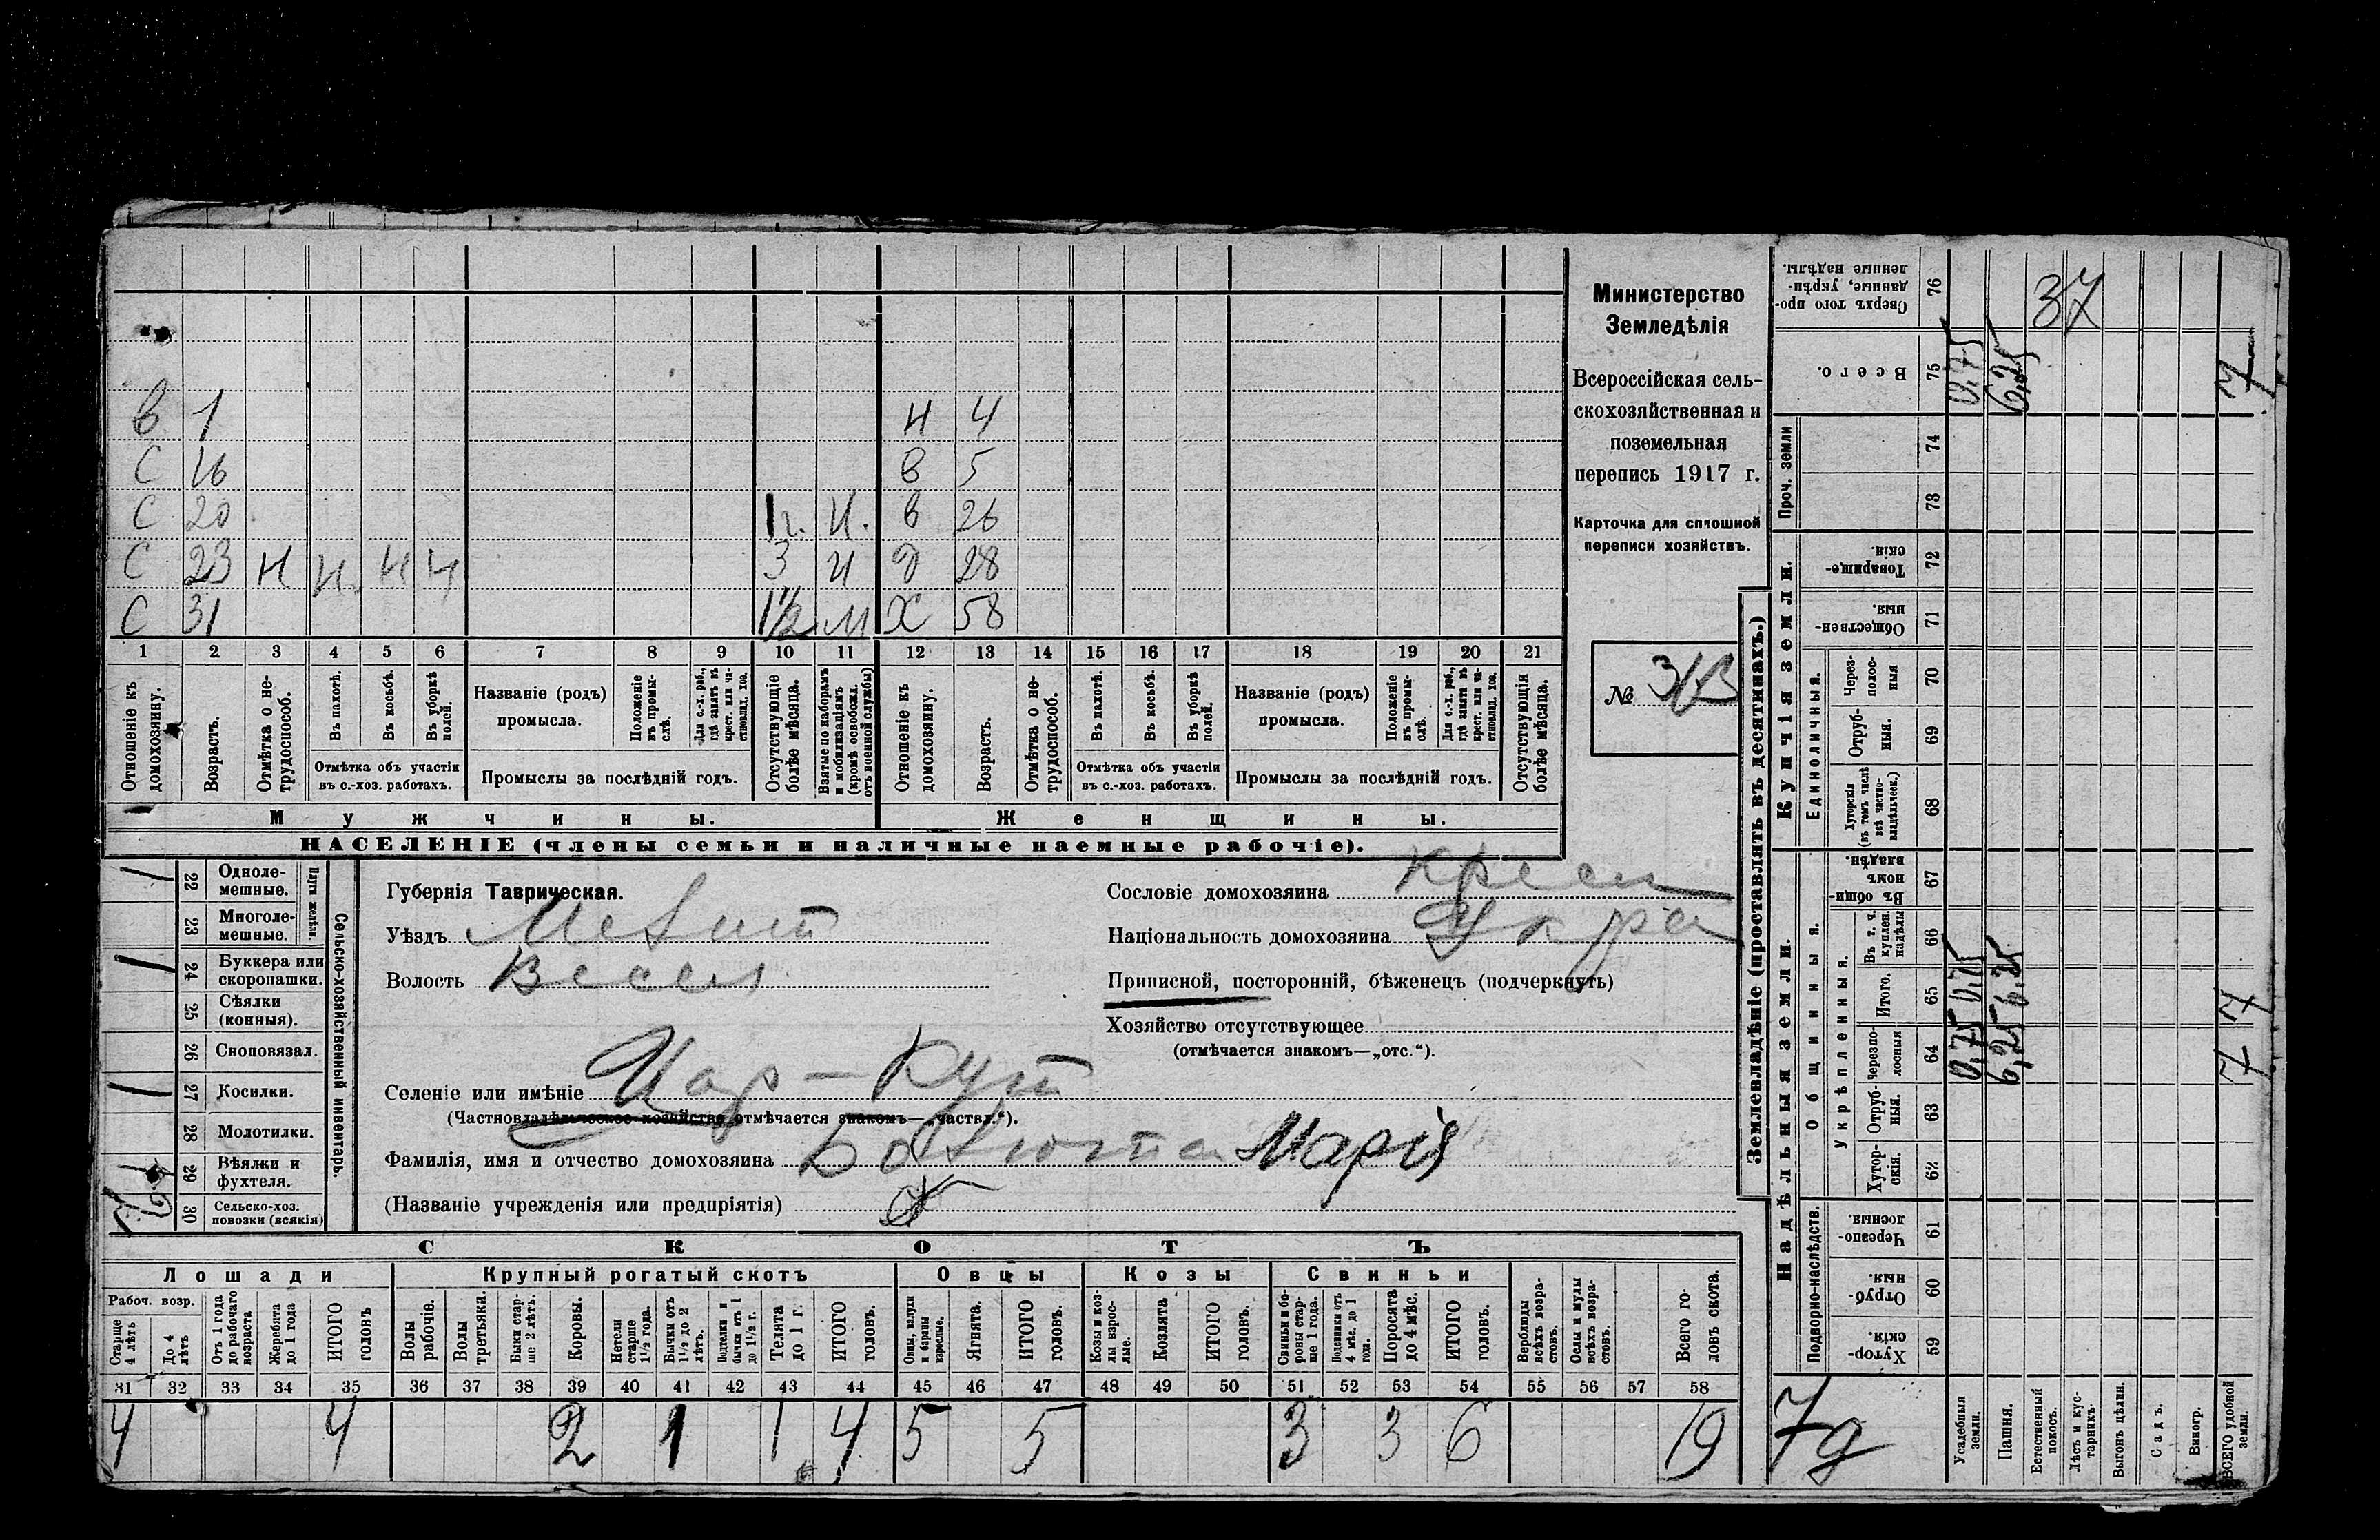 В 1 Н 4
С 16 В 5
С 20 1 г. И. В 26
С 23 Н И. Н Н 3 И Д 28
С 31 1½ И Х 58
1 2 3 4 5 6 7 8 9 10 11 12 13 14 15 16 17 18 19 20 21
Отношеніе къ домохозяину.
Возрастъ.
Отмѣтка о не-трудоспособ.
Въ пахотѣ.
Въ косьбѣ.
Въ уборкѣ полей.
Отмѣтка объ участіи въ с.-хоз. работахъ.
Названіе (родъ) промысла.
Положеніе въ промы-слѣ.
Для с.-х. раб., гдѣ занятъ въ крест. или ча-стновлад. хоз.
Промыслы за послѣдній годъ.
Отсутствующіе болѣе мѣсяца.
Взятые по наборамъ и мобилизаціямъ (кромѣ освобожд. отъ военной службы)
Отношеніе къ домохозяину.
Возрастъ.
Отмѣтка о не-трудоспособ.
Въ пахотѣ.
Въ косьбѣ.
Въ уборкѣ полей.
Отмѣтка объ участіи въ с.-хоз. работахъ.
Названіе (родъ) промысла.
Положеніе въ промы-слѣ.
Для с.-х. раб., гдѣ занята въ крест. или ча-стновлад. хоз.
Промыслы за послѣдній годъ.
Отсутствующія болѣе мѣсяца.
Мужчины. Женщины.
НАСЕЛЕНІЕ (члены семьи и наличные наемные рабочіе).
Министерство
Земледѣлія
Всероссійская сель-
скохозяйственная и
поземельная
перепись 1917 г.
Карточка для сплошной
переписи хозяйствъ.
№
Сельско-хозяйственный инвентарь.
Плуги желѣзн.
1 22 Одноле-мешные.
23 Многоле-мешные.
1 24 Буккера или скоропашки.
25 Сѣялки (конныя).
26 Сноповязал.
1 27 Косилки.
28 Молотилки.
29 Вѣялки и фухтеля.
30 Сельско-хоз. повозки (всякія)
Губернія Таврическая.
Уѣздъ Мелит
Волость Весел
Селеніе или имѣніе Цар-Кут
(Частновладѣльческое хозяйство отмѣчается знакомъ—„частвл.“).
Фамилія, имя и отчество домохозяина Марія
(Названіе учрежденія или предпріятія)
Сословіе домохозяина Крест
Національность домохозяина Укра
Приписной, посторонній, бѣженецъ (подчеркнуть)
Хозяйство отсутствующее
(отмѣчается знакомъ—„отс.“).
СКОТЪ
Лошади Крупный рогатый скотъ Овцы Козы Свиньи
Рабоч. возр.
Старше 4 лѣтъ
До 4 лѣтъ
Отъ 1 года до рабочаго возраста
Жеребята до 1 года
ИТОГО головъ
Волы рабочіе.
Волы третьяки.
Быки стар-ше 2 лѣтъ.
Коровы.
Нетели старше 1½ года.
Бычки отъ 1½ до 2 лѣтъ.
Подтелки и бычки отъ 1 до 1½ г.
Телята до 1 г.
ИТОГО головъ.
Овцы, валухи и бараны взрослые.
Ягнята.
ИТОГО головъ.
Козы и коз-лы взрос-лые.
Козлята
ИТОГО головъ.
Свиньи и бо-ровы стар-ше 1 года.
Подсвинки отъ 4 мѣс. до 1 года.
Поросята до 4 мѣс.
ИТОГО головъ.
Верблюды всѣхъ возра-стовъ.
Ослы и мулы всѣхъ возра-стовъ.
Всего го-ловъ скота.
31 32 33 34 35 36 37 38 39 40 41 42 43 44 45 46 47 48 49 50 51 52 53 54 55 56 57 58
4 4 2 1 1 4 5 5 3 3 6 19
Землевладѣніе (проставлять въ десятинахъ.)
Купчія земли.
Надѣльныя земли.
Проч. земли
Единоличныя.
Общинныя.
Укрѣпленныя.
Подворно-наслѣдств.
Сверхъ того про-данные, укрѣп-ленные надѣлы. 76 37
Всего. 75 0,75 6,25 7
74
73
Товарище-скія. 72
Обществен-ныя. 71
Черезполос-ныя 70
Отруб-ныя. 69
Хуторскія (въ томъ числѣ всѣ частно-владѣльческ.) 68
Въ общин-номъ владѣн. 67
Въ т. ч. куплен. надѣлы 66
Итого. 65 0,75 6,25 7
Черезпо-лосныя 64 0,75 6,25 7
Отруб-ныя. 63
Хутор-скія. 62
Черезпо-лосныя. 61
Отруб-ныя. 60
Хутор-скія. 59
7д
Усадебныя земли.
Пашня.
Естественный покосъ.
Лѣсъ и кус-тарникъ.
Выгонъ цѣлин.
Садъ.
Виногр.
ВСЕГО удобной земли.